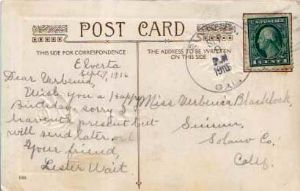 POST CARD
THIS SIDE FOR CORRESPONDENCE
THE ADDRESS TO BE WRITTEN ON THIS SIDE
Elverta
Sept 7, 1916
Dear Verbena,
Wish you a happy
Birthday sorry I
haven't present but
will send later.
Your friend,
Lester Wait.
Miss Verbena Blacklock,
Suisun,
Solano Co.
Calif.
1916
CAL.
1 CENT 1